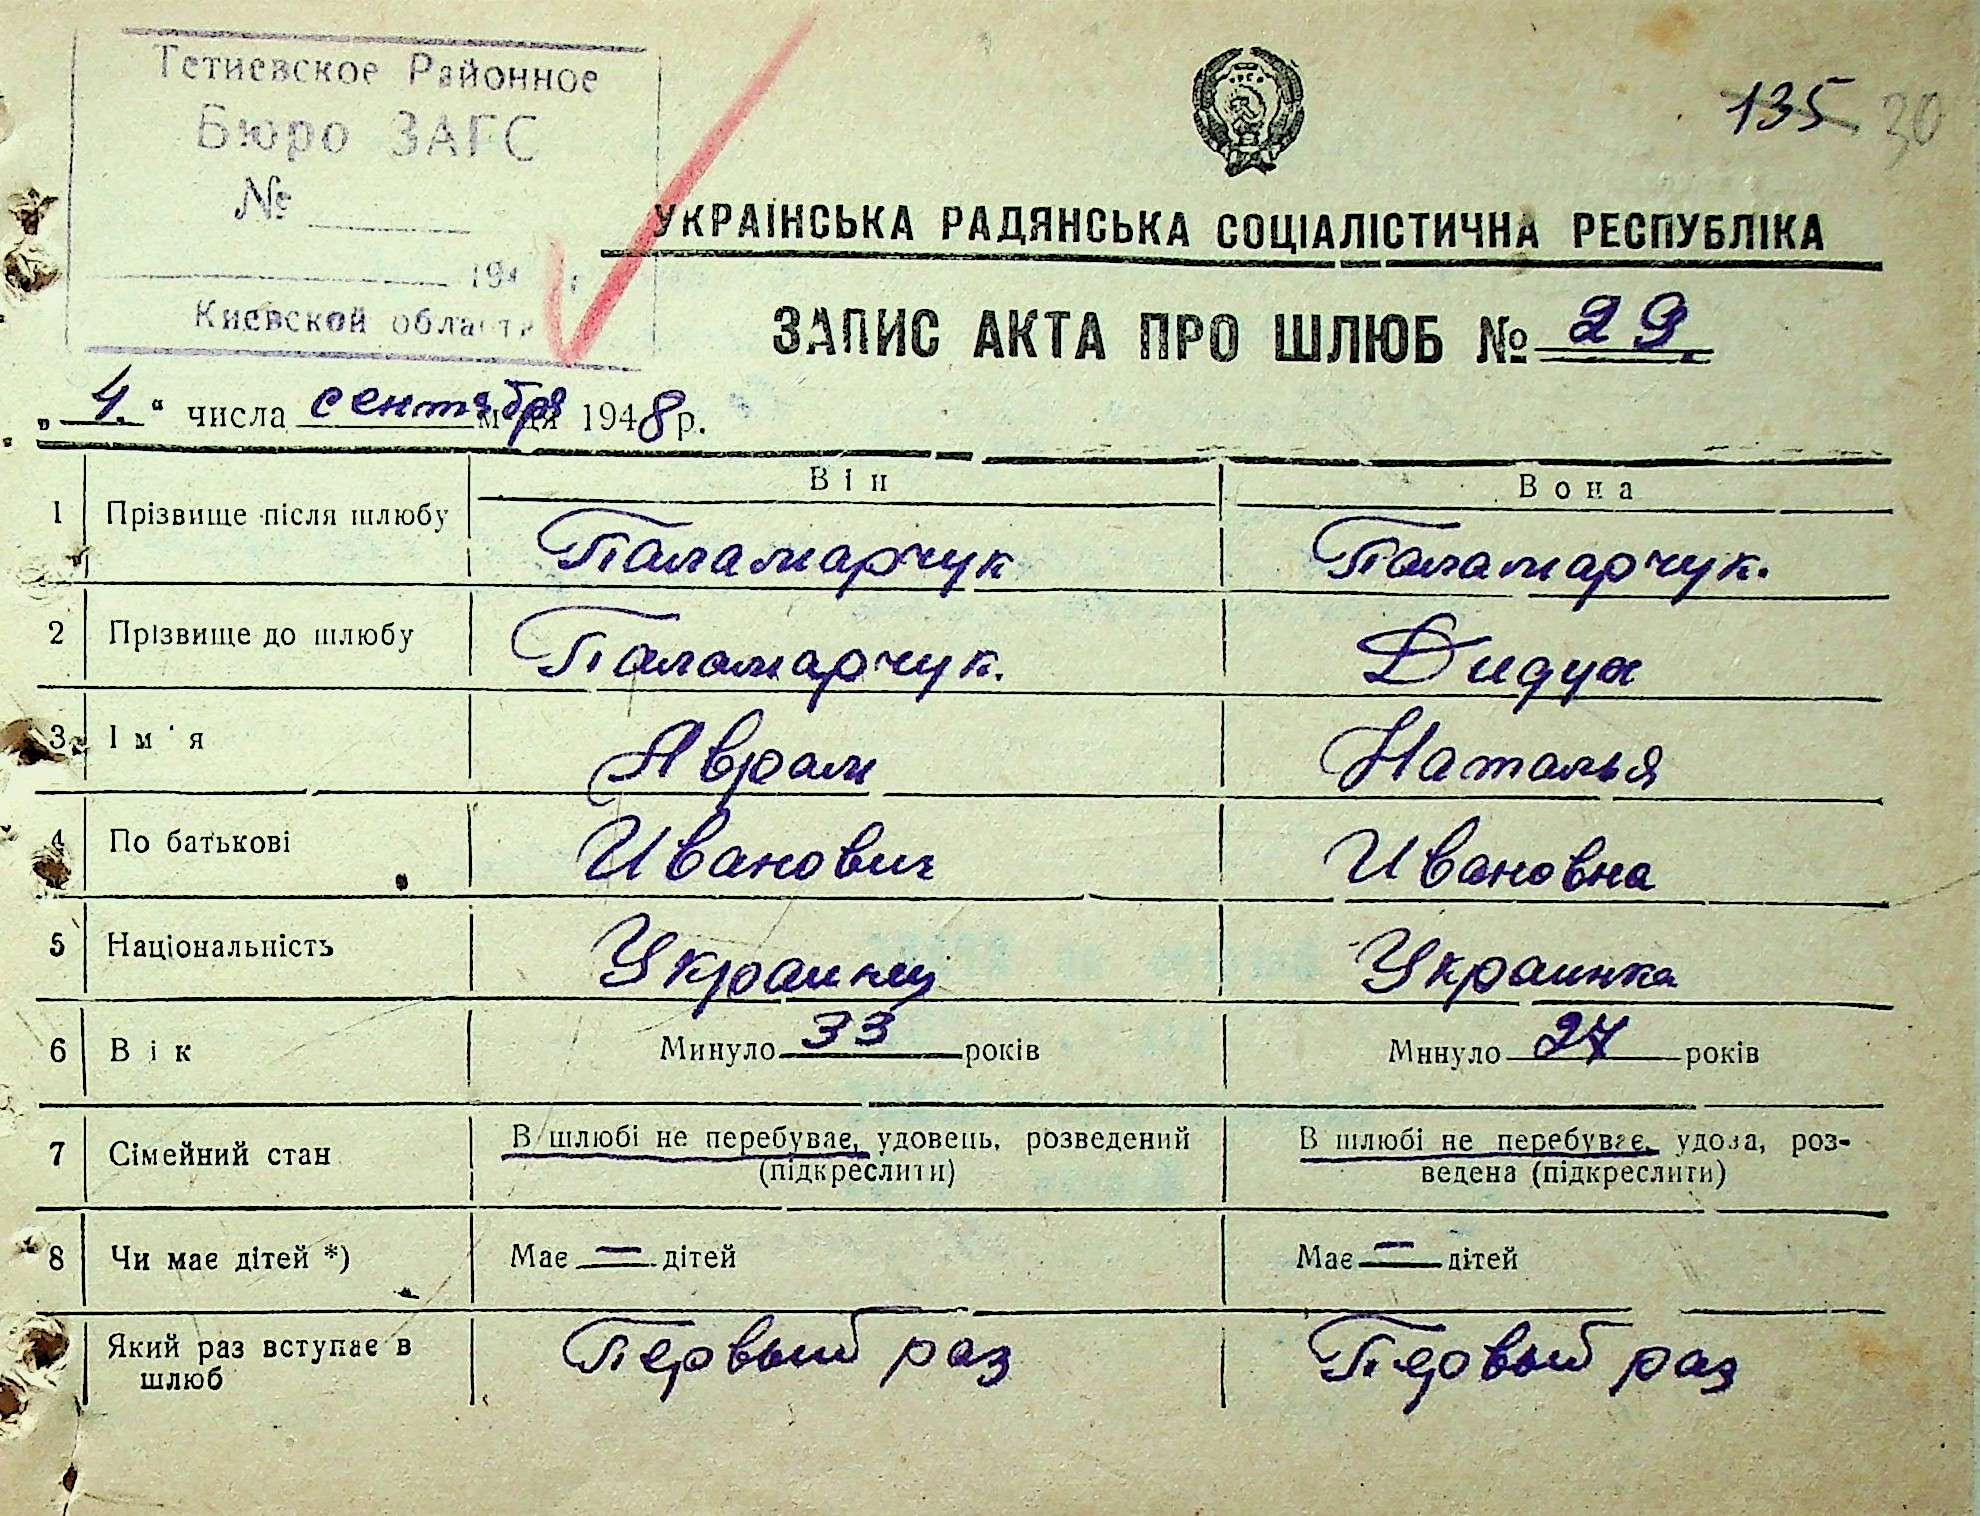 Тетиевское Районное
Бюро ЗАГС
№
194 г
Киевской области
135 30
УКРАЇНСЬКА РАДЯНСЬКА СОЦІАЛІСТИЧНА РЕСПУБЛІКА
ЗАПИС АКТА ПРО ШЛЮБ № 29.
„ 4. “ числа сентября м-ця 1948 р.
Він Вона
1 Прізвище після шлюбу Паламарчук Паламарчук.
2 Прізвище до шлюбу Паламарчук. Дидух
3 Ім'я Аврам Наталья
4 По батькові Иванович Ивановна
5 Національність Украинец Украинка
6 Вік Минуло 33 років Минуло 27 років
7 Сімейний стан В шлюбі не перебуває, удовець, розведений (підкреслити) В шлюбі не перебуває, удова, роз-
ведена (підкреслити)
8 Чи має дітей *) Має — дітей Має — дітей
Який раз вступає в шлюб Первый раз Первый раз